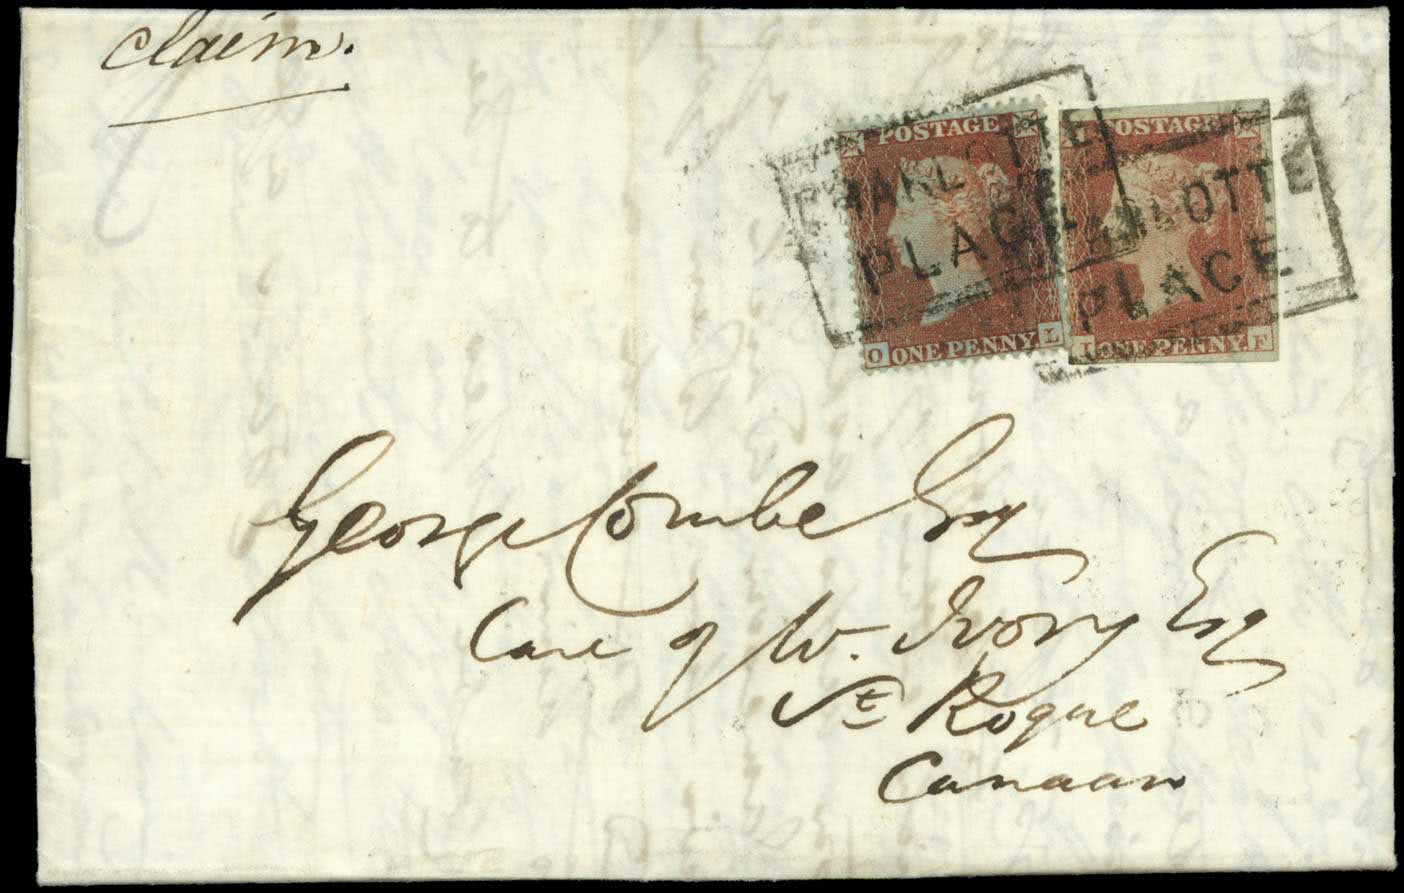 Claim.
POSTAGE
O ONE PENNY. L
POSTAGE
I ONE PENNY. F
CHARLOTTE
PLACE
CHARLOTTE
PLACE
George Combe Esq
Care of W. Ivory Esq
St Roque
Canaan